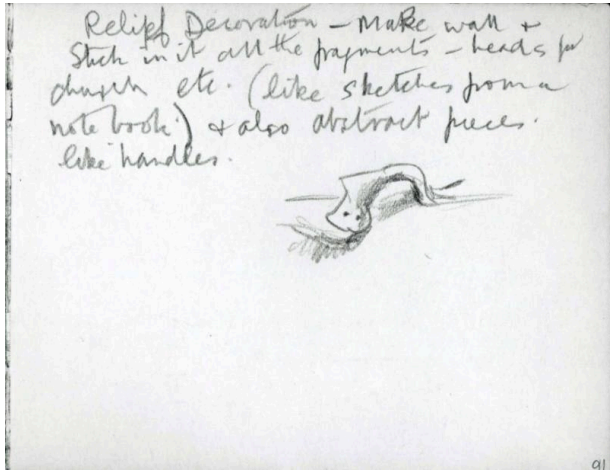 Relief Decoration – Make wall +
Stick in it all the fragments – heads for
church etc. (like sketches from a
note book) + also abstract pieces.
like handles.
91